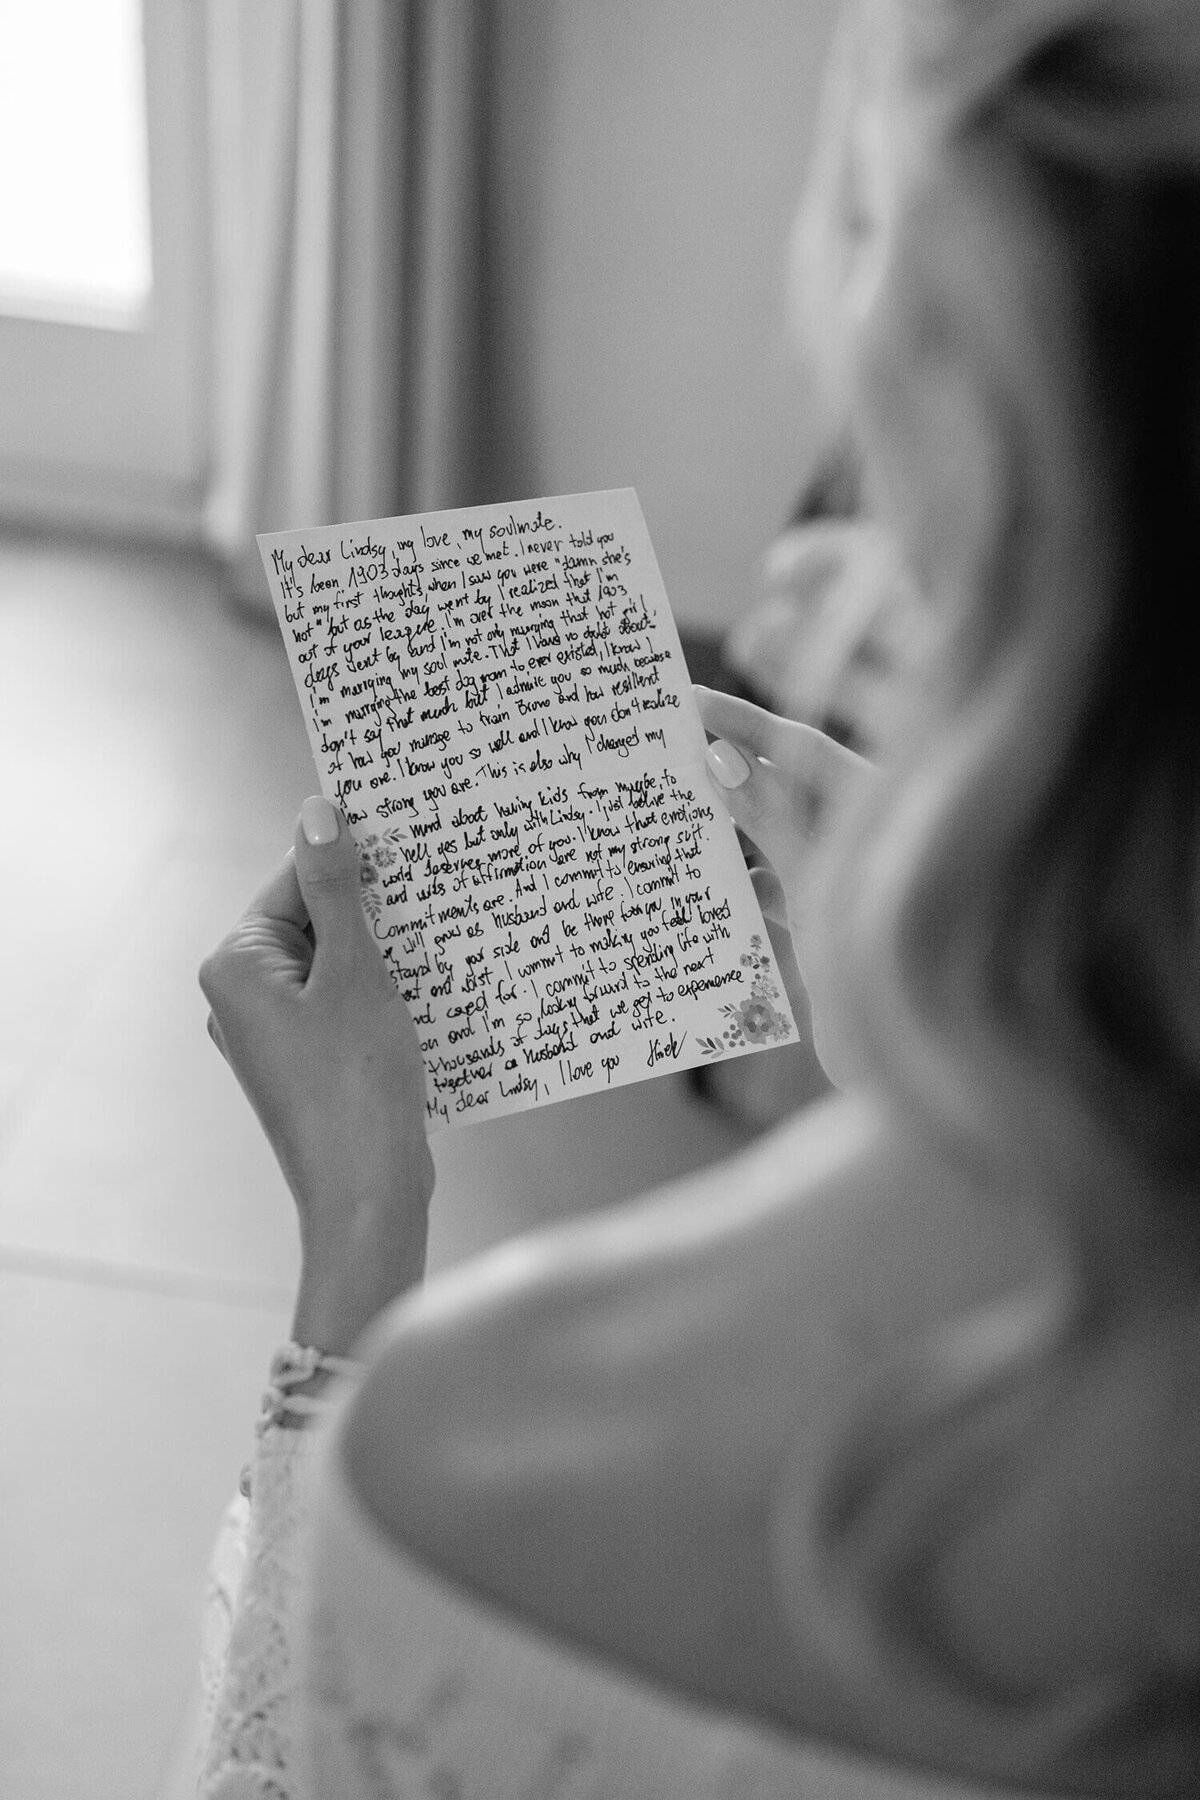 My dear Lindsy, my love, my soulmate.
It's been 1903 days since we met. I never told you
but my first thoughts when I saw you were "damn she's
hot" but as the day went by I realized that I'm
out of your league. I'm over the moon that 1903
days went by and I'm not only marrying that hot girl,
I'm marrying my soul mate. That I have no doubt about.
I'm marrying the best dog mom to ever existed, I know I
don't say that much but I admire you so much because
of how you manage to train Bruno and how resilient
you are. I know you so well and I know you don't realize
how strong you are. This is also why I changed my
mind about having kids from maybe, to
hell yes but only with Lindsy. I just believe the
world deserves more of you. I know that emotions
and words of affirmation are not my strong suit.
Commitments are. And I commit to ensuring that
we will grow as husband and wife. I commit to
stand by your side and be there for you in your
best and worst. I commit to making you feel loved
and cared for. I commit to spending life with
you and I'm so looking forward to the next
thousands of days that we get to experience
together as husband and wife.
My dear Lindsy, I love you